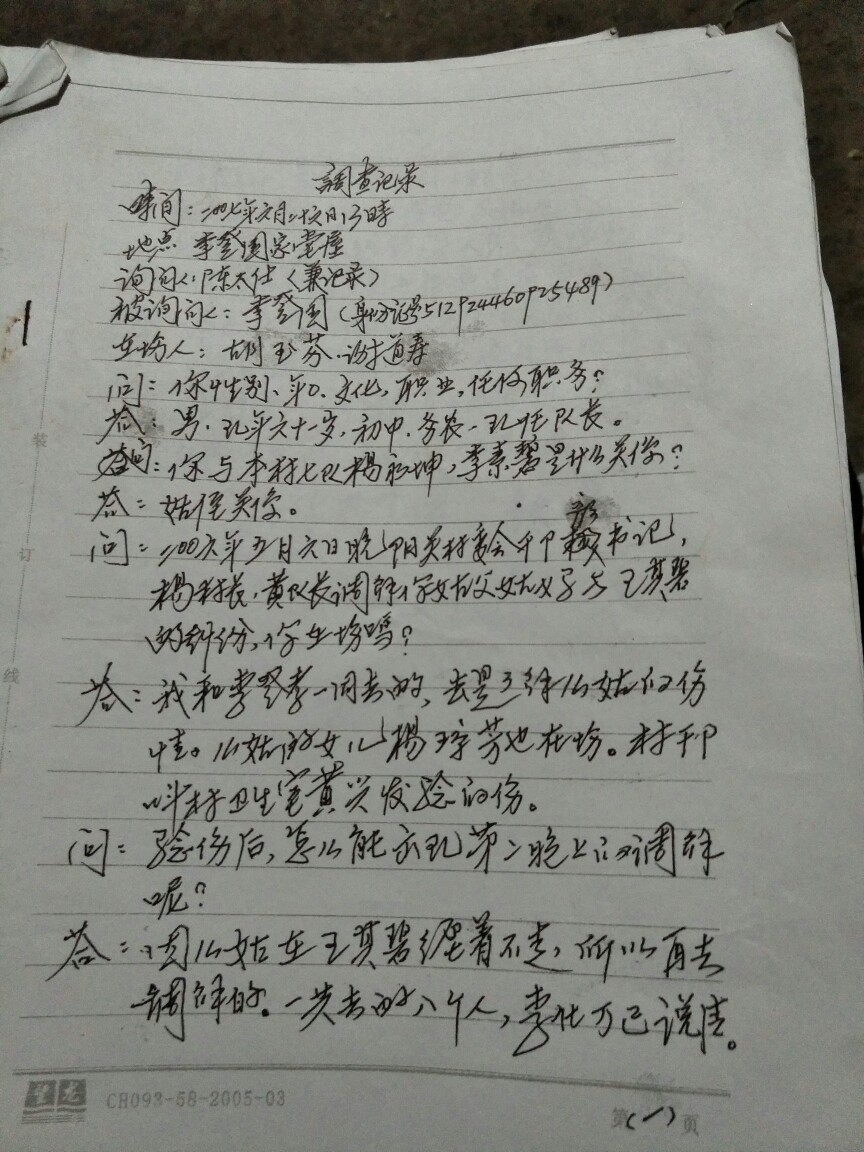 調查记录
時间：二00七年六月二十六日13時
地点 李登国家堂屋
询问人：陈大仕（兼记录）
被询问人：李登国（身份证号512924460925489）
在场人：胡玉芬、谢道寿
问：你性别、年令、文化，职业，任何职务？
答：男．现年六十一岁，初中．务农．现任队长。
问：你与本村七队楊 坤，李素碧是什么关係？
答：姑侄关係。
问：二00六年五月六日晚 村委会干部 书记，
楊村长，黄队长調解你姑父姑母子与王其碧
的纠纷，你在场吗？
答：我和李登孝一同去的，去是 解么姑的伤
情。么姑的女儿楊琼芳也在场。村干部
叫村卫生室黄兴发验的伤。
问：验伤后，怎么能出现第二晚上的調解
呢？
答：因么姑在王其碧 着不走，所以再去
調解的。一共去的八个人，李仕万已说清。
装
订
线
CH093-58-2005-03
第（一）页